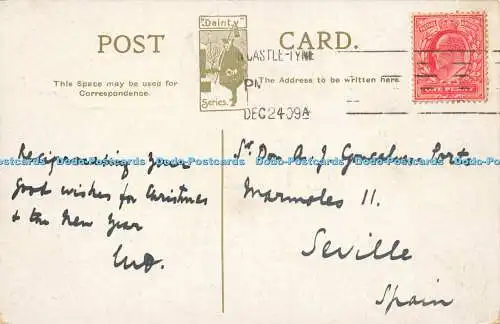 POST CARD.
"Dainty"
Series.
This Space may be used for
Correspondence.
The Address to be written here
CASTLE-TYNE
DEC 24 09A
ONE PENNY
Reciprocating your
good wishes for Christmas
& the New Year
Sr Don A. J.
Marmoles 11.
Seville
Spain
Dodo-Postcards Dodo-Postcards Dodo-Postcards Dodo-Postcards Dodo-Postcards